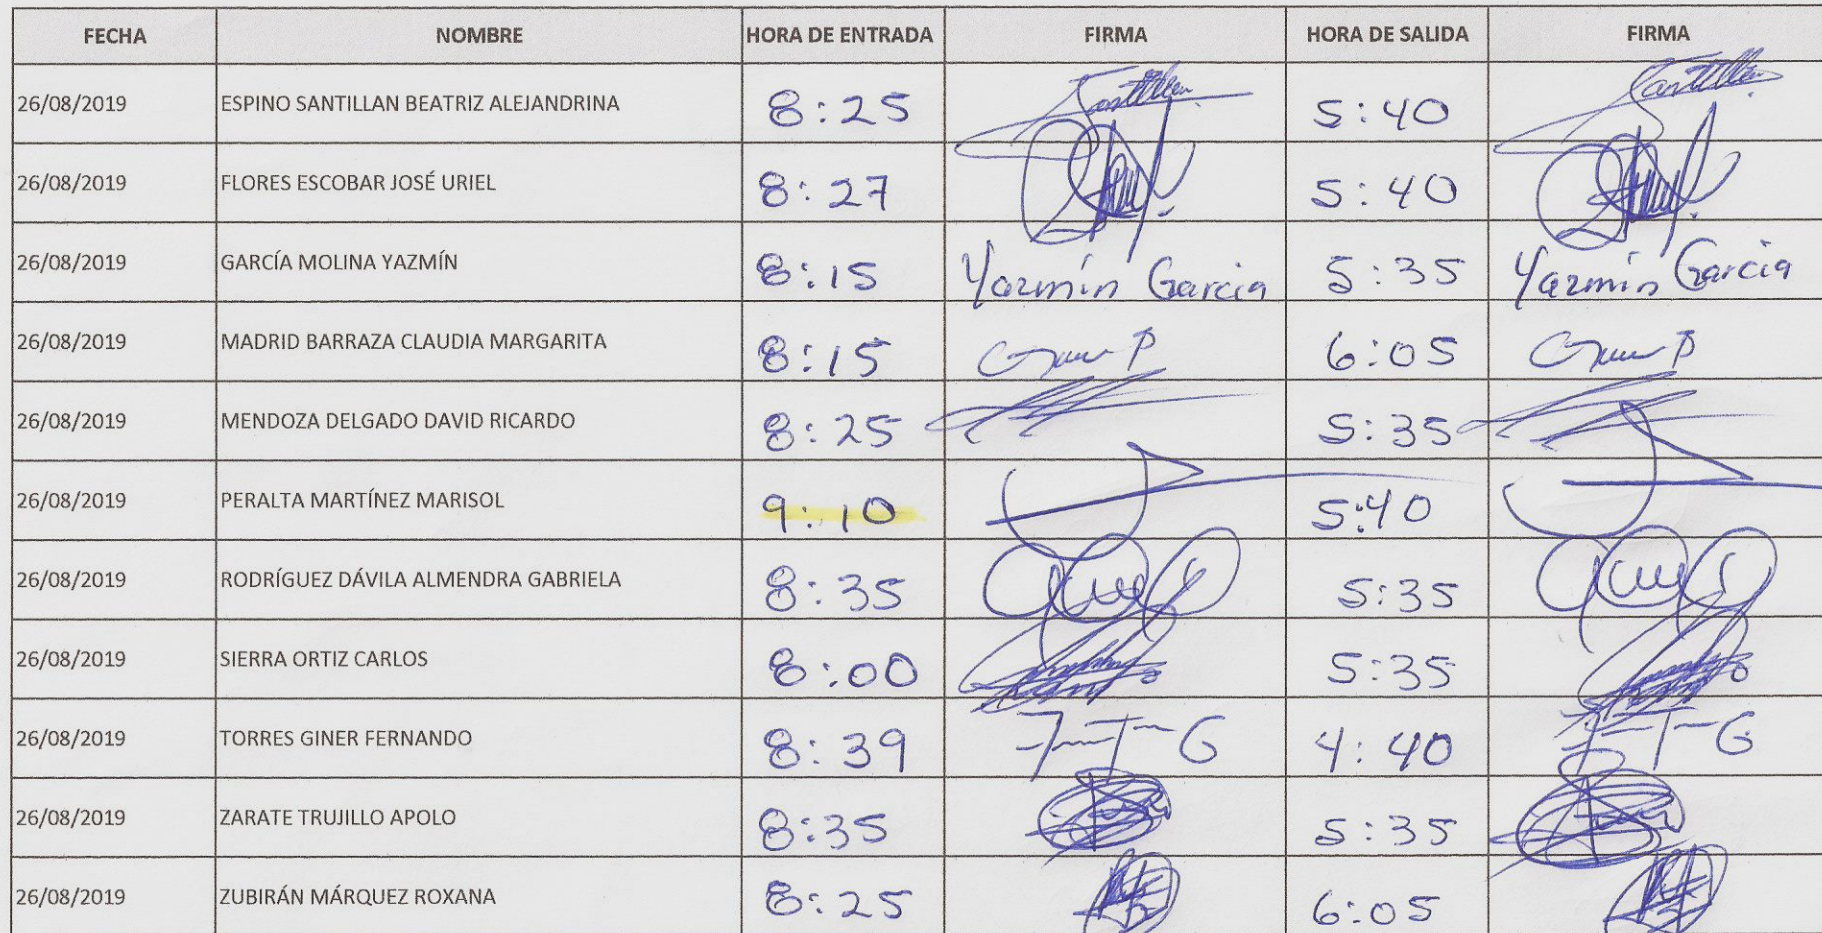 FECHA NOMBRE HORA DE ENTRADA FIRMA HORA DE SALIDA FIRMA
26/08/2019 ESPINO SANTILLAN BEATRIZ ALEJANDRINA 8:25 Santillan 5:40 Santillan
26/08/2019 FLORES ESCOBAR JOSÉ URIEL 8:27 5:40
26/08/2019 GARCÍA MOLINA YAZMÍN 8:15 Yazmín Garcia 5:35 Yazmín Garcia
26/08/2019 MADRID BARRAZA CLAUDIA MARGARITA 8:15 6:05
26/08/2019 MENDOZA DELGADO DAVID RICARDO 8:25 5:35
26/08/2019 PERALTA MARTÍNEZ MARISOL 9:10 5:40
26/08/2019 RODRÍGUEZ DÁVILA ALMENDRA GABRIELA 8:35 5:35
26/08/2019 SIERRA ORTIZ CARLOS 8:00 5:35
26/08/2019 TORRES GINER FERNANDO 8:39 F-T-G 4:40 F-T-G
26/08/2019 ZARATE TRUJILLO APOLO 8:35 5:35
26/08/2019 ZUBIRÁN MÁRQUEZ ROXANA 8:25 6:05